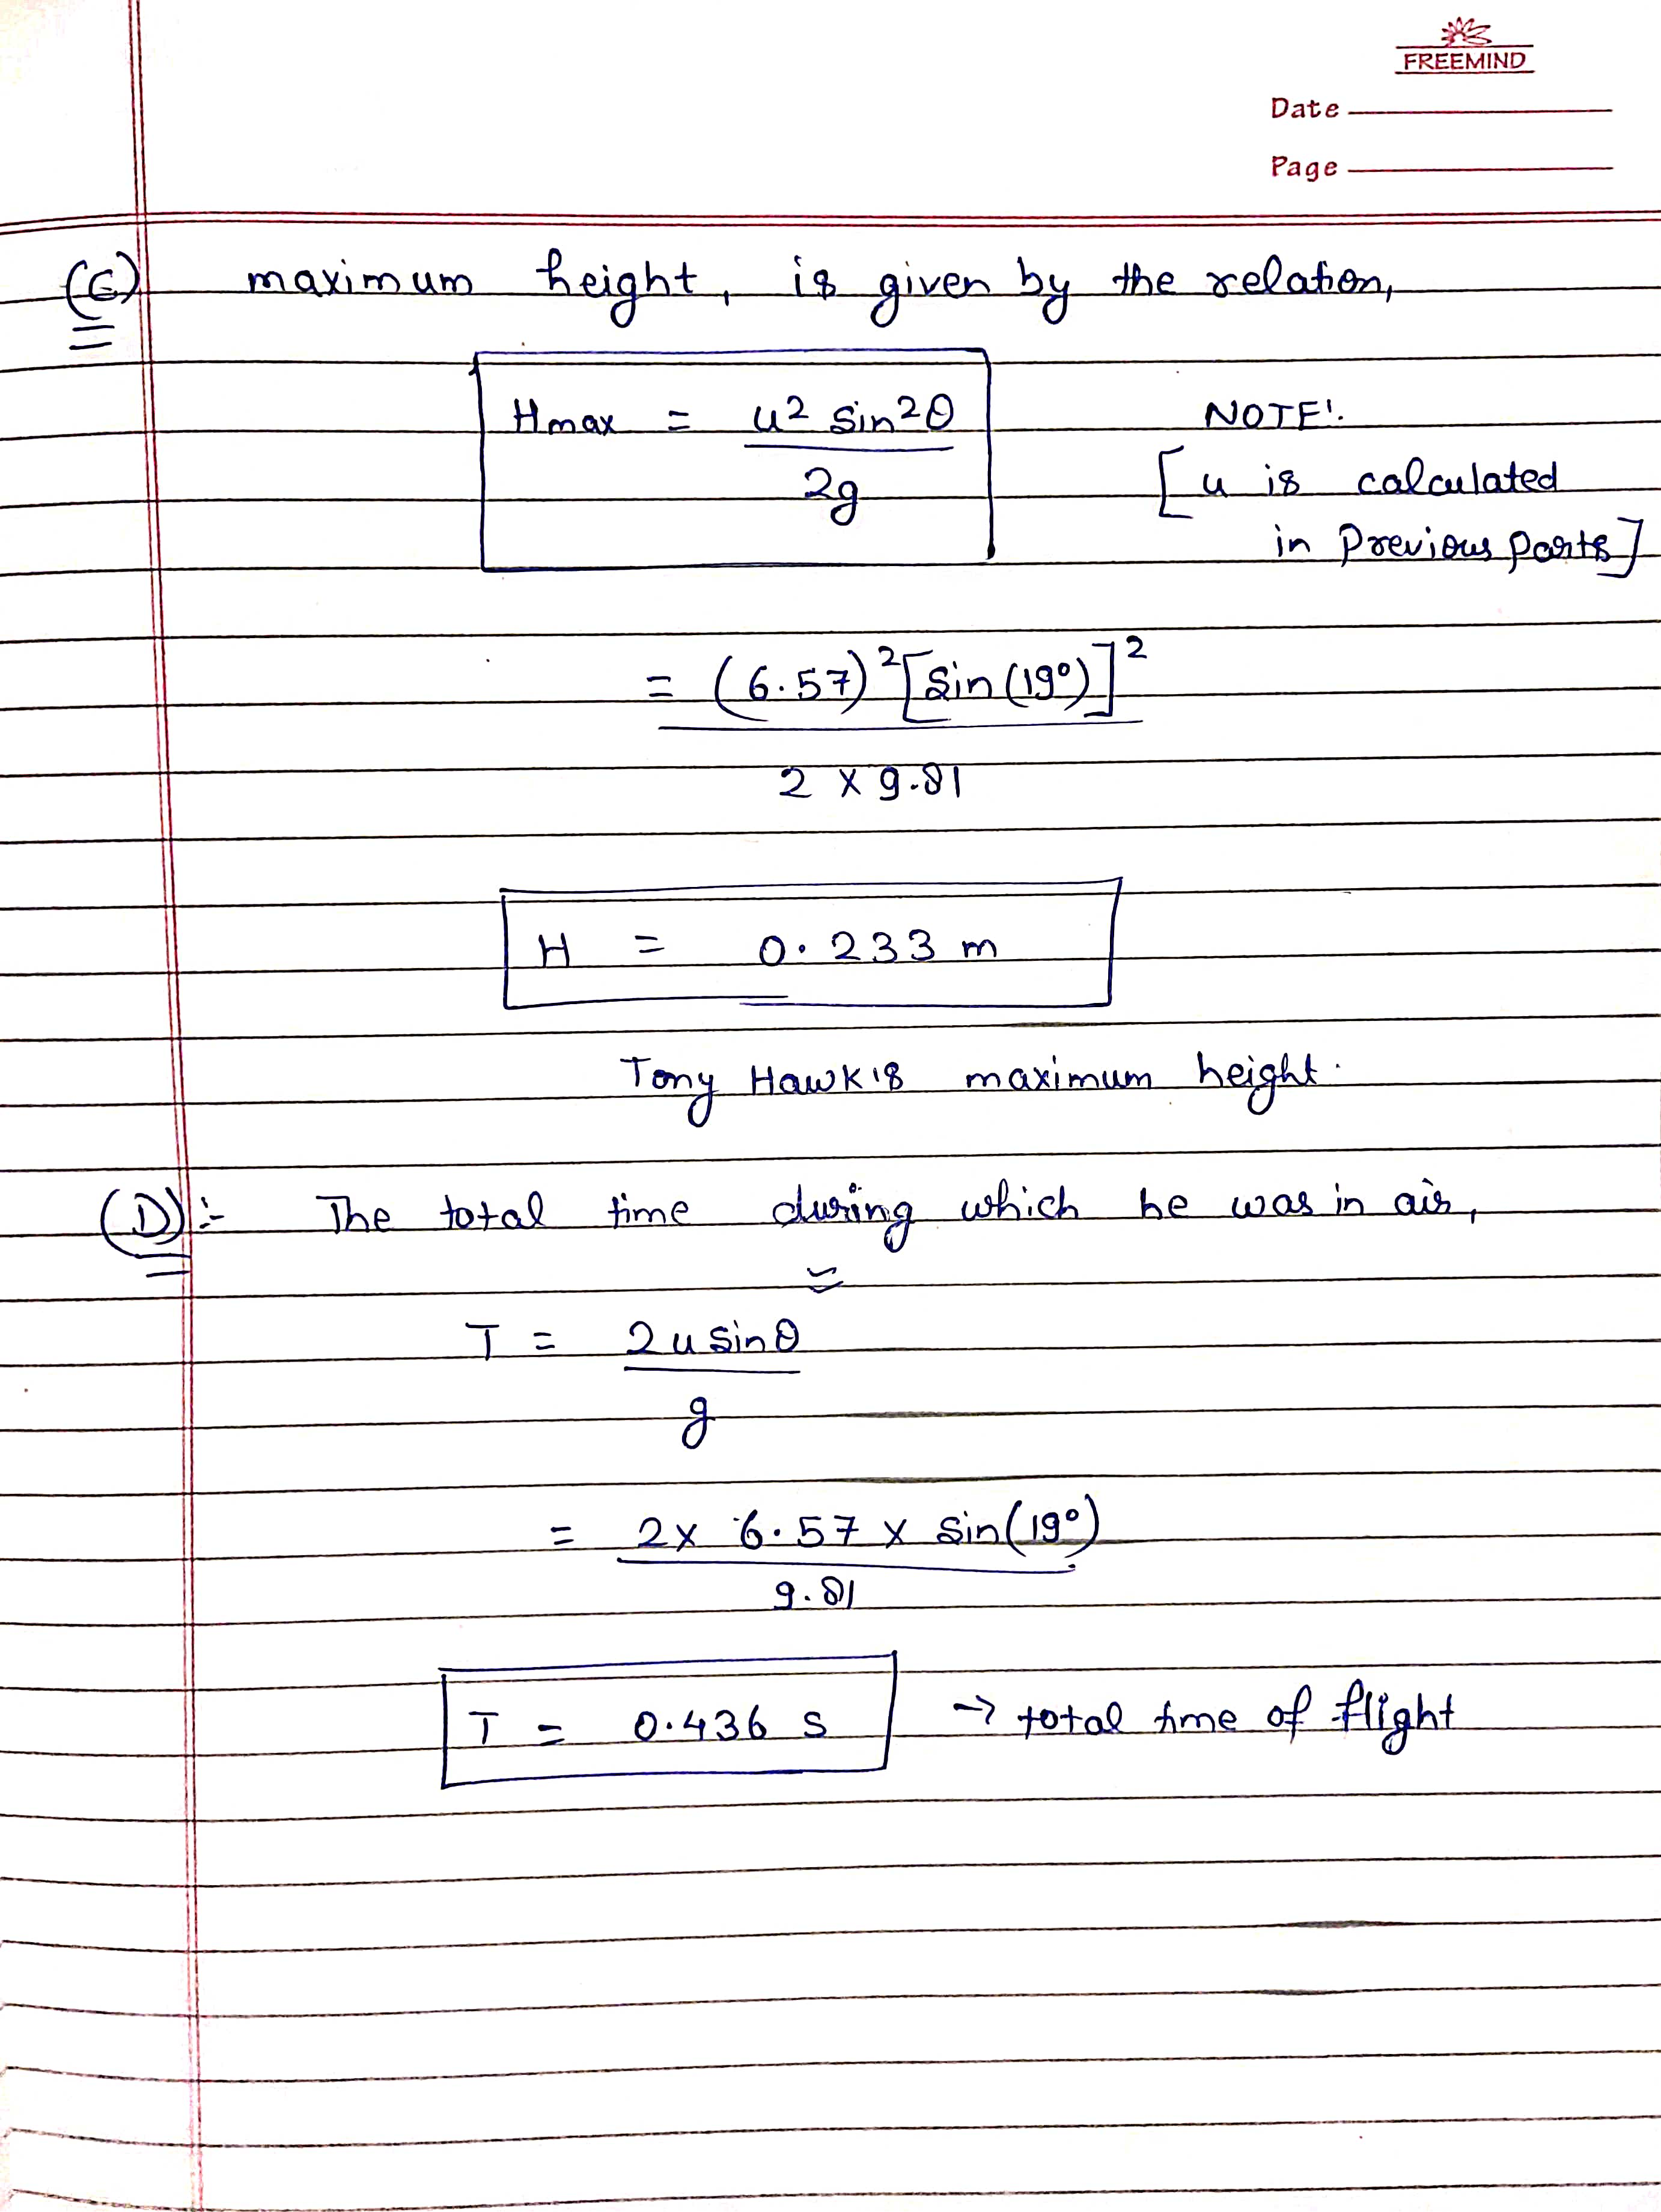 FREEMIND
Date
Page
(C) maximum height, is given by the relation,
Hmax = u2 sin2θ
2g
NOTE:
[u is calculated
in Previous parts]
= (6.57)² [sin (19°)]²
2 × 9.81
H = 0.233 m
Tony Hawk's maximum height.
(D):- The total time during which he was in air,
T = 2u sinθ
g
= 2× 6.57 × sin(19°)
9.81
T = 0.436 s → total time of flight